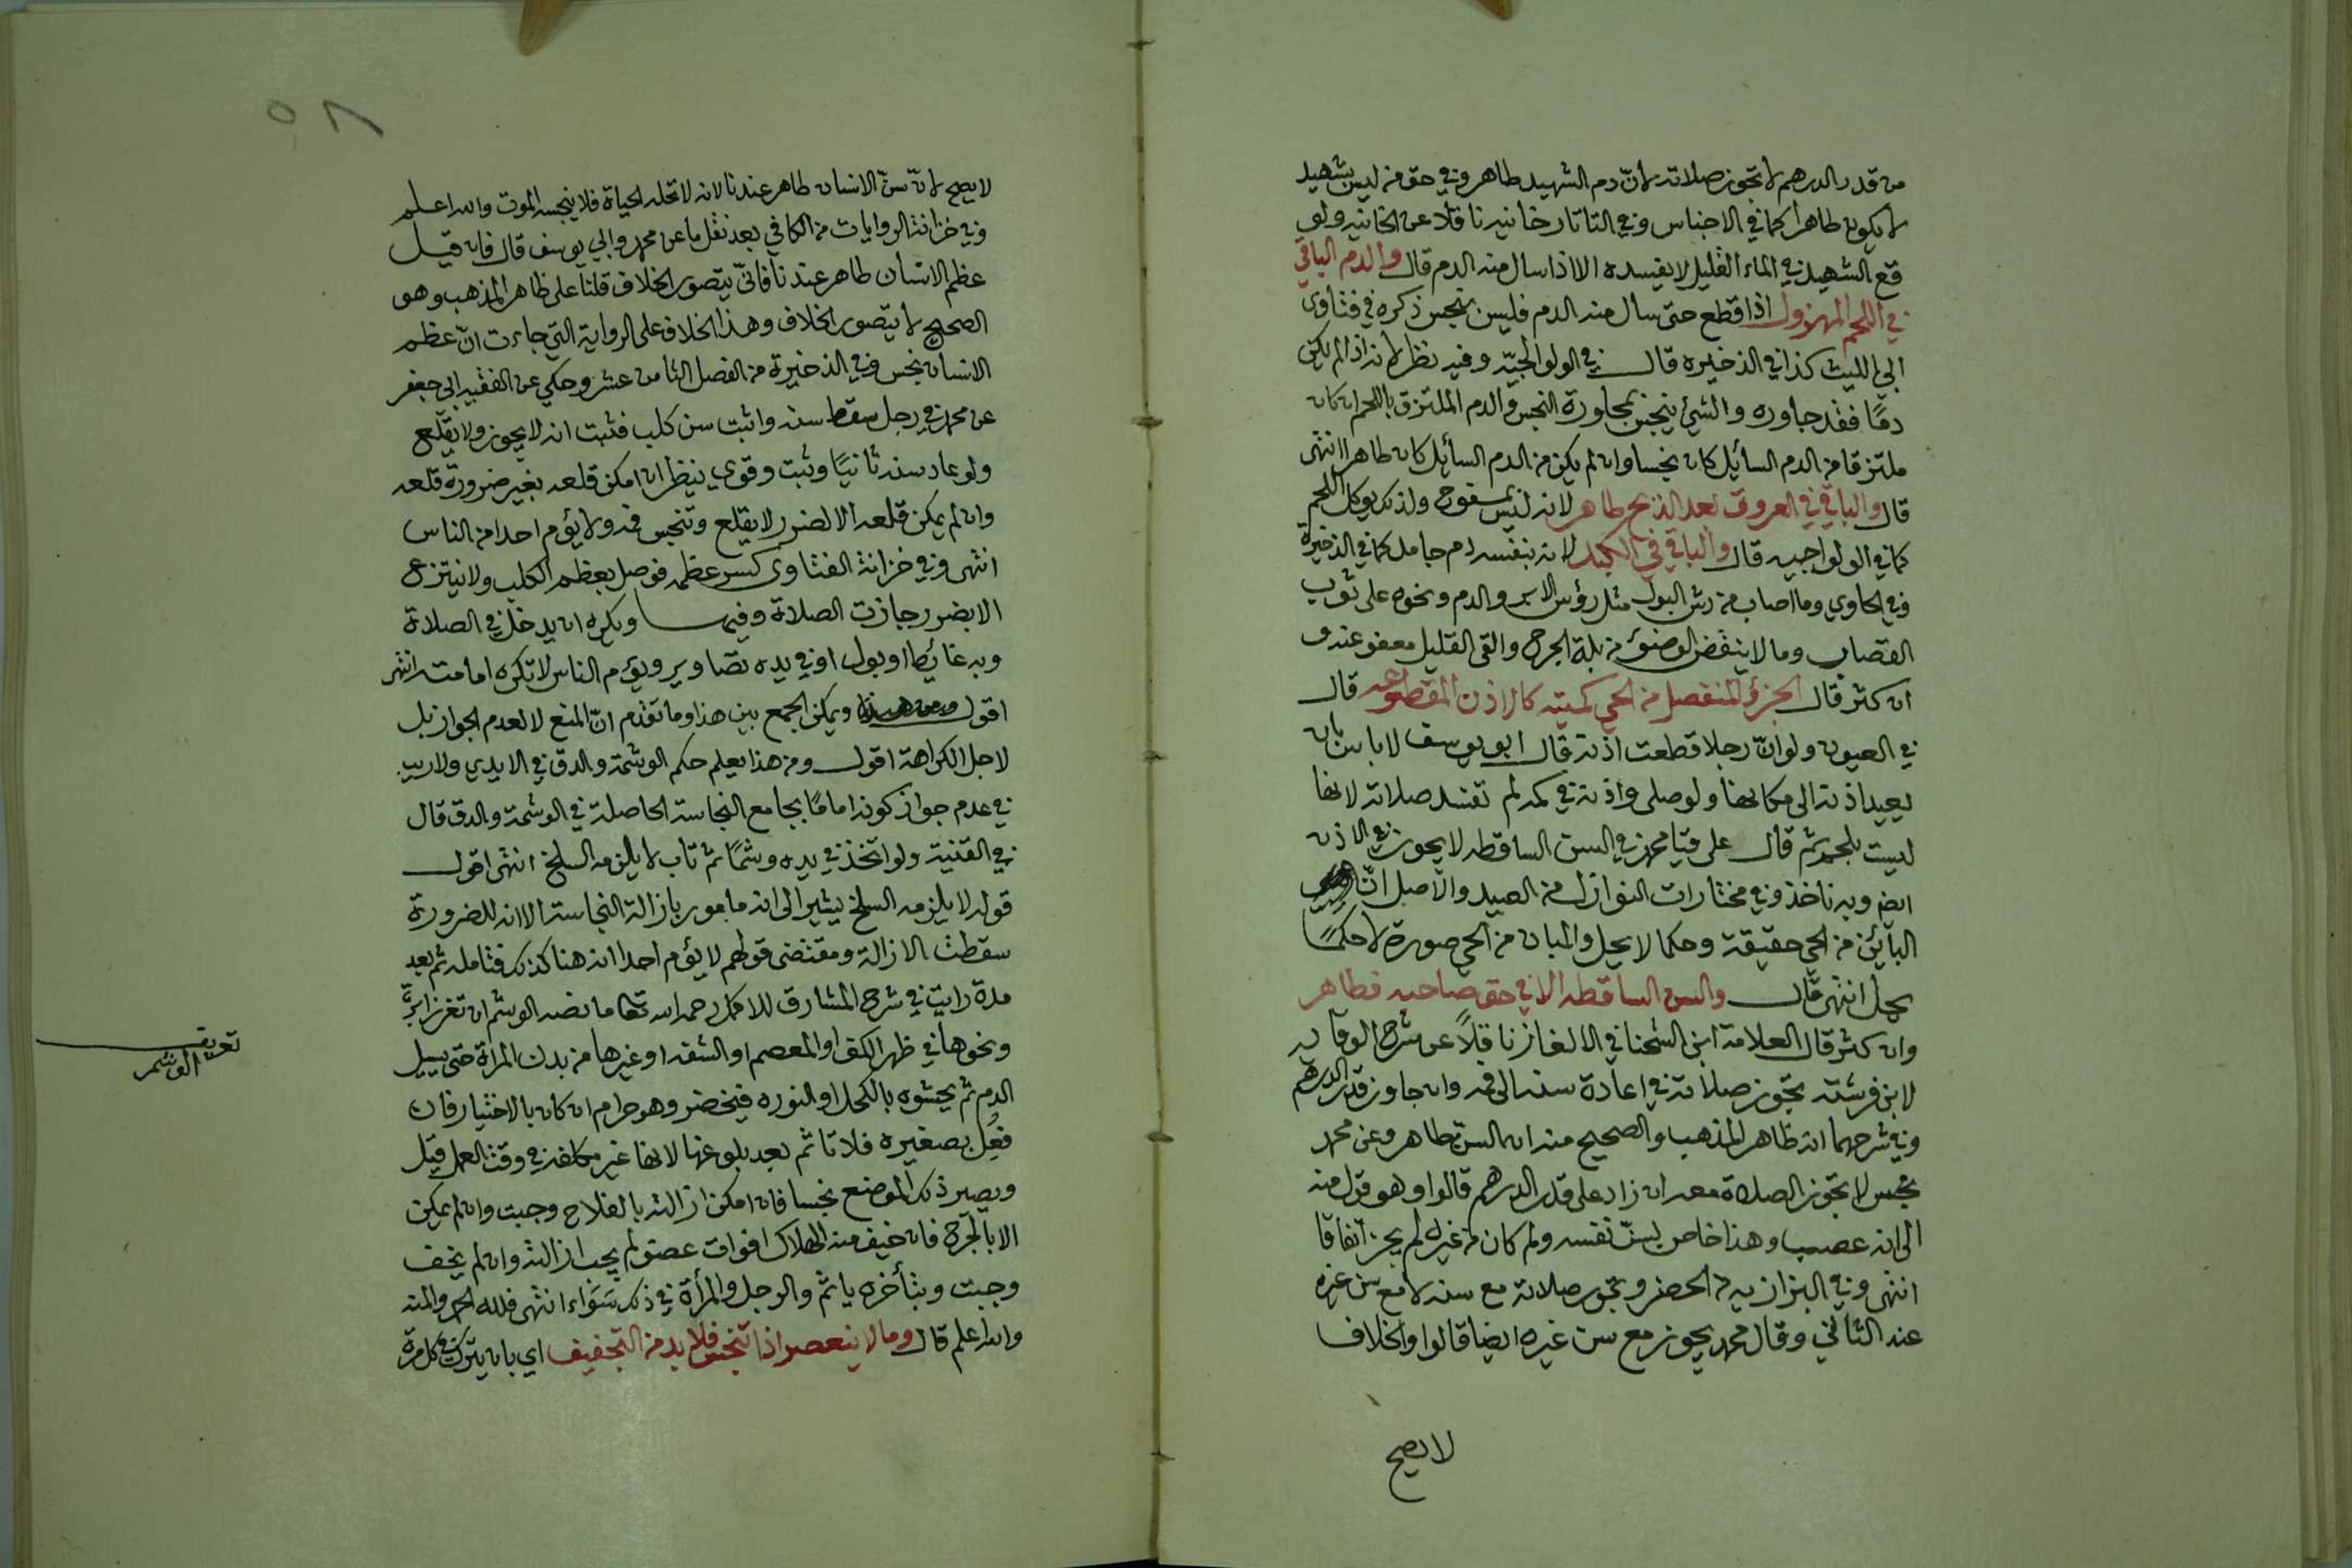 من قدر الدرهم لا تجوز صلاته لانّ دم الشهيد طاهر وفي حق من ليس بشهيد
لا يكون طاهرا كما في الاجناس وفي التاتارخانيه ناقلا عن الخانيه ولو
قع الشهيد في الماء القليل لا يفسده الا اذا سال منه الدم قال والدم الباقي
في اللحم المهزول اذا قطع حتى سال منه الدم فليس بنجس ذكره في فتاوى
ابي الليث كذا في الذخيره قال في الولوالجيّه وفيه نظر لانه اذا لم يكن
دمًا فقد جاوره والشيئ ينجس بمجاورة النجس والدم الملتزق باللحم ان كان
ملتزقا من الدم السائل كان نجسا وان لم يكن من الدم السائل كان طاهرا انتهى
قال والباقي في العروق بعد الذبح طاهر لانه ليس بمسفوح ولذلك يوكل اللحم
كما في الولواجيه قال والباقي في الكبد لانه بنفسه دم جامد كما في الذخيرة
وفي الحاوي وما اصاب من رش البول مثل رؤس الابر والدم ونحوه على ثوب
القصاب وما لا ينقض الوضوء من بلة الجرح والقئ القليل معفو عنه و
ان كثر قال الجزؤ المنفصل من الحي كميته كالاذن المقطوعه قال
في العيون ولو انّ رجلا قطعت اذنه قال ابو يوسف لا باس بان
يعيد اذنه الى مكانها ولو صلى واذنه في كمه لم تفسد صلاته لانها
ليست بلحم ثم قال على قيا محمد في السن الساقطه لا يجوز في الاذن
ايضا وبه ناخذ وفي مختارات النوازل من الصيد والاصل انّ
البائن من الحي حقيقة وحكما لا يحل والمبان من الحي صورة لا حكمًا
يحل انتهى قال والسن الساقطه الا في حق صاحبه فطاهر
وان كثر قال العلامة ابن الشحنا في الالغاز ناقلاً عن شرح الوقايه
لابن فرشته تجوز صلاته في اعادة سنه الى فمه وان جاوز قدر الدرهم
وفي شرحهما انه ظاهر المذهب والصحيح منه ان السن طاهر وعن محمد
نجس لا تجوز الصلاة معه ان زاد على قدر الدرهم قالوا وهو قول منه
الى انه عصب وهذا خاص بسنّ نفسه ولو كان من غيره لم يجز اتفاقا
انتهى وفي البزازيه الحضر وتجوز صلاته مع سنه لا مع سن غيره
عند الثاني وقال محمد يجوز مع سن غيره ايضا قالوا والخلاف
لا يصح
٥٨
لا يصح لانّ سنّ الانسان طاهر عندنا لانه لا تحله الحياة فلا ينجسه الموت والله اعلم
وفي خزانة الروايات من الكافي بعد نقل ما عن محمد وابي يوسف قال فان قيل
عظم الانسان طاهر عندنا فانّى يتصور الخلاف قلنا على ظاهر المذهب وهو
الصحيح لا يتصور الخلاف وهذا الخلاف على الرواية التي جاءت انّ عظم
الانسان نجس وفي الذخيرة من الفصل الثامن عشر وحكي عن الفقيه ابي جعفر
عن محمد في رجل سقط سنه واثبت سن كلب فثبت انه لا يجوز ولا يقلع
ولو عاد سنه ثانيًا وثبت وقوي ينظر ان امكن قلعه بغير ضرورة قلعه
وان لم يمكن قلعه الا لضرر لا يقلع وتنجس فمه ولا يؤم احدا من الناس
انتهى وفي خزانة الفتاوى كسر عظمه فوصل بعظم الكلب ولا ينتزع
الا بضرر جازت الصلاة وفيها ويكره ان يدخل في الصلاة
وبه غائطا او بول او في يده تصاوير ويؤم الناس لا تكره امامته انتهى
اقول ويمكن الجمع بين هذا وما تقدم انّ المنع لا لعدم الجواز بل
لاجل الكراهة اقول ومن هذا يعلم حكم الوشمة والدق في الايدي ولا ريب
في عدم جواز كونه امامًا بجامع النجاسة الحاصلة في الوشمة والدق قال
في القنية ولو اتخذ في يده وشمًا ثم تاب لا يلزمه السلخ انتهى اقول
قوله لا يلزمه السلخ يشير الى انه مامور بازالة النجاسة الا انه للضرورة
سقطت الازالة ومقتضى قولهم لا يؤم احدا انه هنا كذلك فتامله ثم بعد
مدة رايت في شرح المشارق للاكمل رحمه الله تعا ما نصه الوشم ان تغرز ابرة
ونحوها في ظهر الكف او المعصم او الشفه او غيرها من بدن المراة حتى يسيل
الدم ثم يحشوه بالكحل او النوره فيخضر وهو حرام ان كان بالاختيار فان
فعل بصغيره فلا تاثم بعد بلوغها لانها غير مكلفه في وقت العمل قيل
ويصير ذلك الموضع نجسا فان امكن ازالته بالفلاح وجبت وان لم يمكن
الا بالجرح فان خيف منه الهلاك او فوات عضو لم يجب ازالته وان لم يخف
وجبت وبتأخره ياثم والرجل والمرأة في ذلك سَوَاء انتهى فلله الحمد والمنه
والله اعلم قال وما لا ينعصر اذا تنجس فلا بد من التجفيف اي بان يترك في كل مرة
تعريف
الوشم